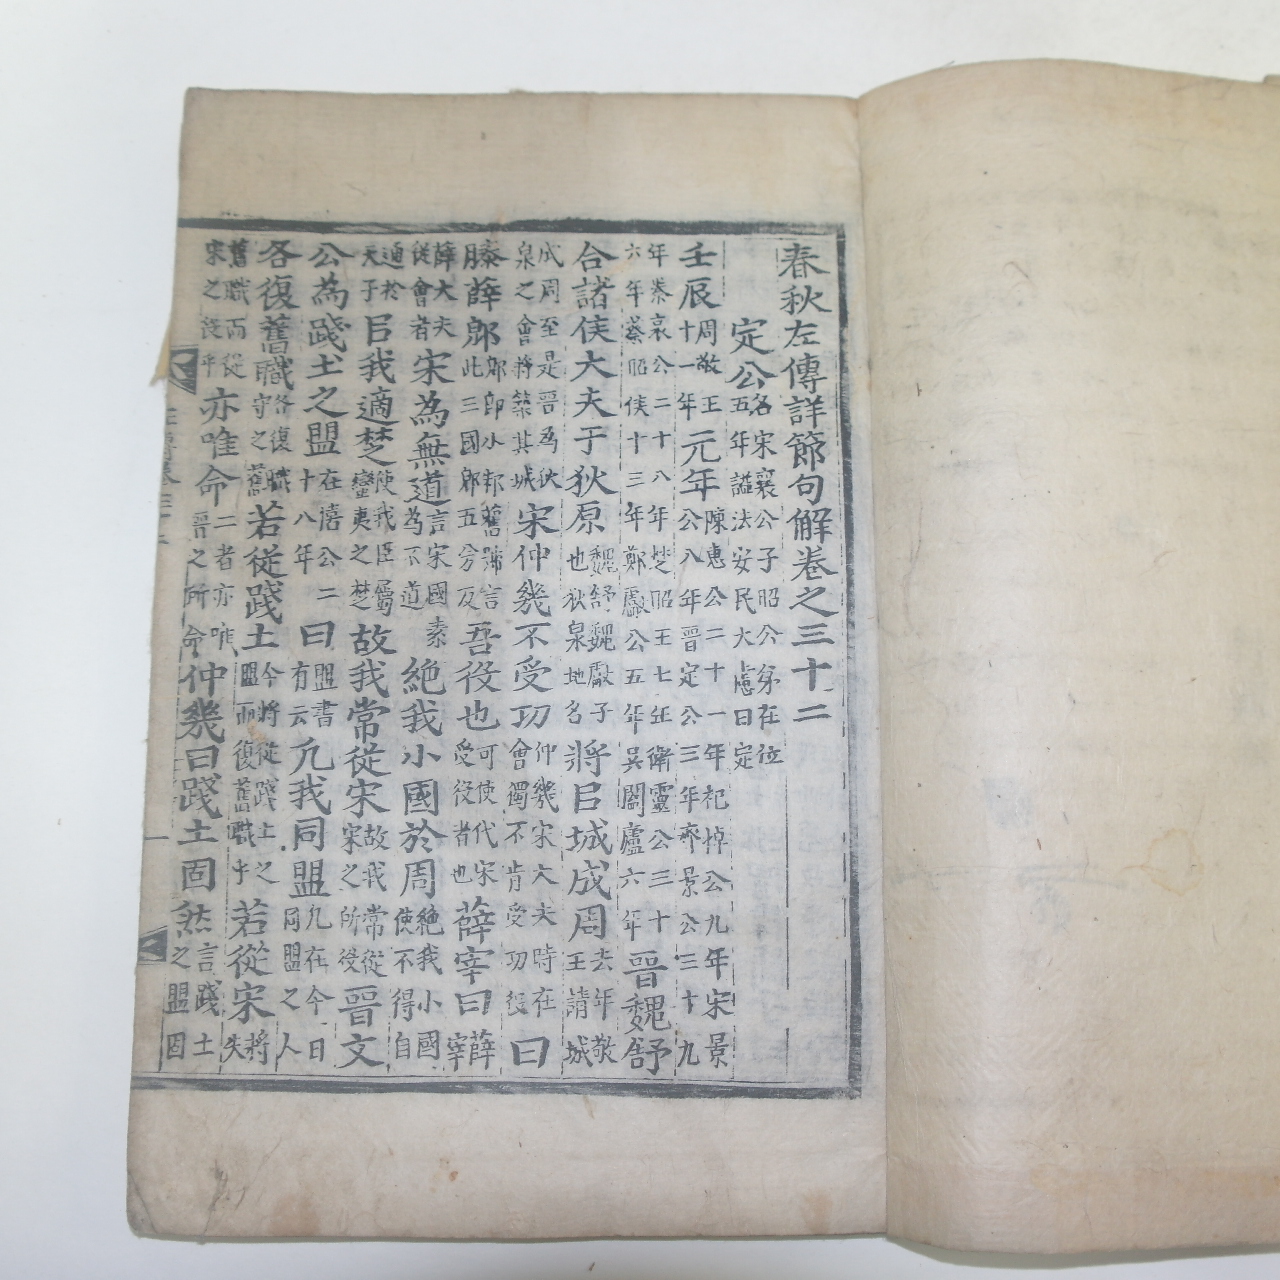 春秋左傳詳節句解卷之三十二
定公名宋襄公子昭公弟在位五年謚法安民大慮曰定
壬辰周敬王十一年元年陳惠公二十一年杞悼公九年宋景公八年晉定公三年齊景公三十九
年秦哀公二十八年楚昭王七年衛靈公三十六年蔡昭侯十三年鄭獻公五年吳闔廬六年晉魏舒
合諸侯大夫于狄原魏舒魏獻子也狄泉地名將㠯城成周去年敬王請城
成周至是晉為狄泉之會將築其城宋仲幾不受功仲幾宋大夫時在會獨不肯受功役曰
滕薛郳郳即小邾舊號言此三國郳五分反吾役也可使代宋受役者也薛宰曰薛宰
薛大夫從會者宋為無道言宋國素為不道絶我小國於周絶我小國使不得自
通於天子㠯我適楚使我臣屬蠻夷之楚故我常從宋故我常從宋之所役晉文
公為踐土之盟在僖公二十八年曰盟書有云凡我同盟凡在今日同盟之人
各復舊職各復職守之舊若從踐土今將從踐土之盟而復舊職乎若從宋將失
舊職而從宋之役乎亦唯命二者亦唯晉之所命仲幾曰踐土固然言踐土之盟固